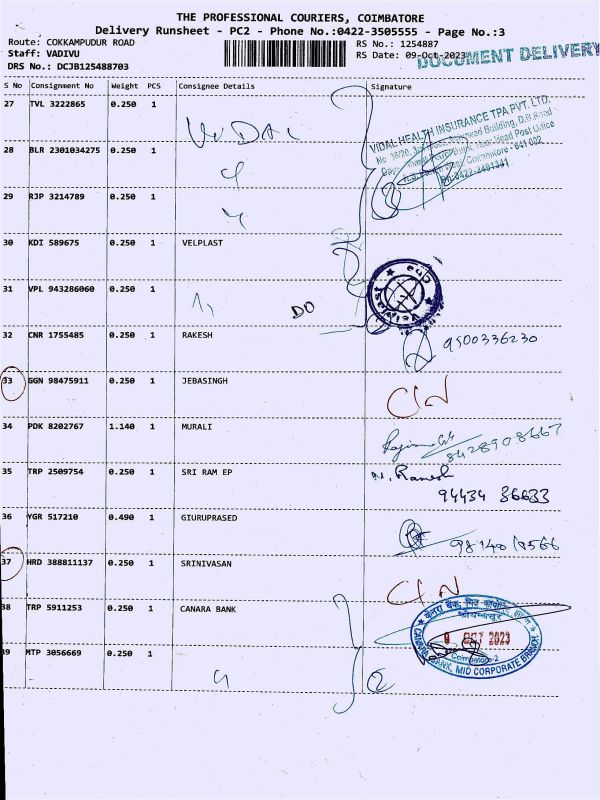 THE PROFESSIONAL COURIERS, COIMBATORE
Delivery Runsheet - PC2 - Phone No.:0422-3505555 - Page No.:3
Route: COKKAMPUDUR ROAD RS No.: 1254887
Staff: VADIVU RS Date: 09-Oct-2023
DOCUMENT DELIVERY
DRS No.: DCJB125488703
S No Consignment No Weight PCS Consignee Details Signature
27 TVL 3222865 0.250 1
VIDAL HEALTH INSURANCE TPA PVT. LTD.
28 BLR 2301034275 0.250 1
29 RJP 3214789 0.250 1
30 KDI 589675 0.250 1 VELPLAST
31 VPL 943286060 0.250 1 DO
32 CNR 1755485 0.250 1 RAKESH 9500336230
33 GGN 98475911 0.250 1 JEBASINGH C/N
34 PDK 8202767 1.140 1 MURALI
35 TRP 2509754 0.250 1 SRI RAM EP N. Ramesh
94434 86633
36 YGR 517210 0.490 1 GIURUPRASED
37 HRD 388811137 0.250 1 SRINIVASAN C/N
38 TRP 5911253 0.250 1 CANARA BANK
OCT 2023
Coimbatore-2
CANARA BANK, MID CORPORATE BRANCH
39 MTP 3056669 0.250 1